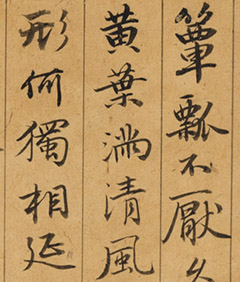 簞瓢不厭久
黃葉滿清風
形何獨相延